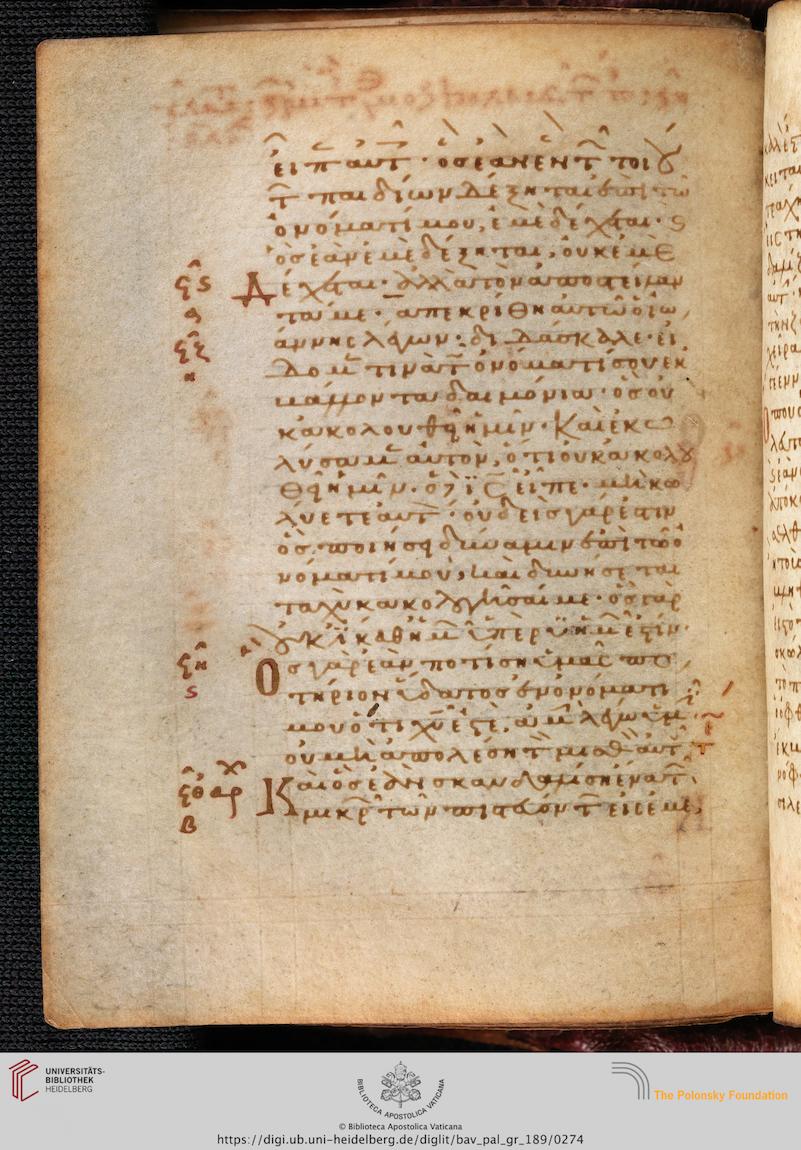 εἶπ αυτ · ὃσ ἐὰν ἓν τ τοιȣ́
τ παιδίων δέξηται ἐπὶ τῶ
ὀνόματί μου, ἐμὲ δέχεται · ϛ
ὃσ ἐὰν ἐμὲ δέξηται, οὐκ ἐμὲ
ϛϛ
δέχεται · ἀλλὰ τὸν ἀποστείλαν
α
τά με · ἀπεκρίθη αὐτῶ ὁ ἰω
ϛζ
άννησ λέγων · διδάσκαλε · εἴ
η
δομ τινὰ τ ὀνοματί σου ἐκ
βάλλοντα δαιμόνια · ὃσ οὐ
κ ἀκολουθεῖ ἡμῖν · Καὶ ἐκω
λύσαμ αὐτὸν, ὅτι οὐκ ἀκολȣ
θεῖ ἡμῖν · ὁ ις εἶπε · μὴ κω
λύετε αὐτ · οὐδεὶσ γάρ ἐστιν
ὃσ ποιήσει δύναμιν ἐπὶ τῶ ὀ
νόματί μου, καὶ δυνήσεται
ταχὺ κακολογῆσαί με · ὃσ γὰρ
ȣκ
ϛη
Ὃσ γὰρ ἐὰν ποτίσῃ ὑμᾶς πο
ϛ
τήριον ὕδατοσ ἐν ὀνόματι
μου ὅτι χυ ἐστὲ, ἀμ λέγω ὑμ
οὐ μὴ ἀπολέσῃ τ μισθ αὐτ
ϛθ
Καὶ ὃσ ἐὰν σκανδαλίσῃ ἕνα τ
β
μικρ τῶν πιστευόντ εἰσ ἐμὲ,
UNIVERSITÄTS-
BIBLIOTHEK
HEIDELBERG
BIBLIOTECA APOSTOLICA VATICANA
The Polonsky Foundation
© Biblioteca Apostolica Vaticana
https://digi.ub.uni-heidelberg.de/diglit/bav_pal_gr_189/0274